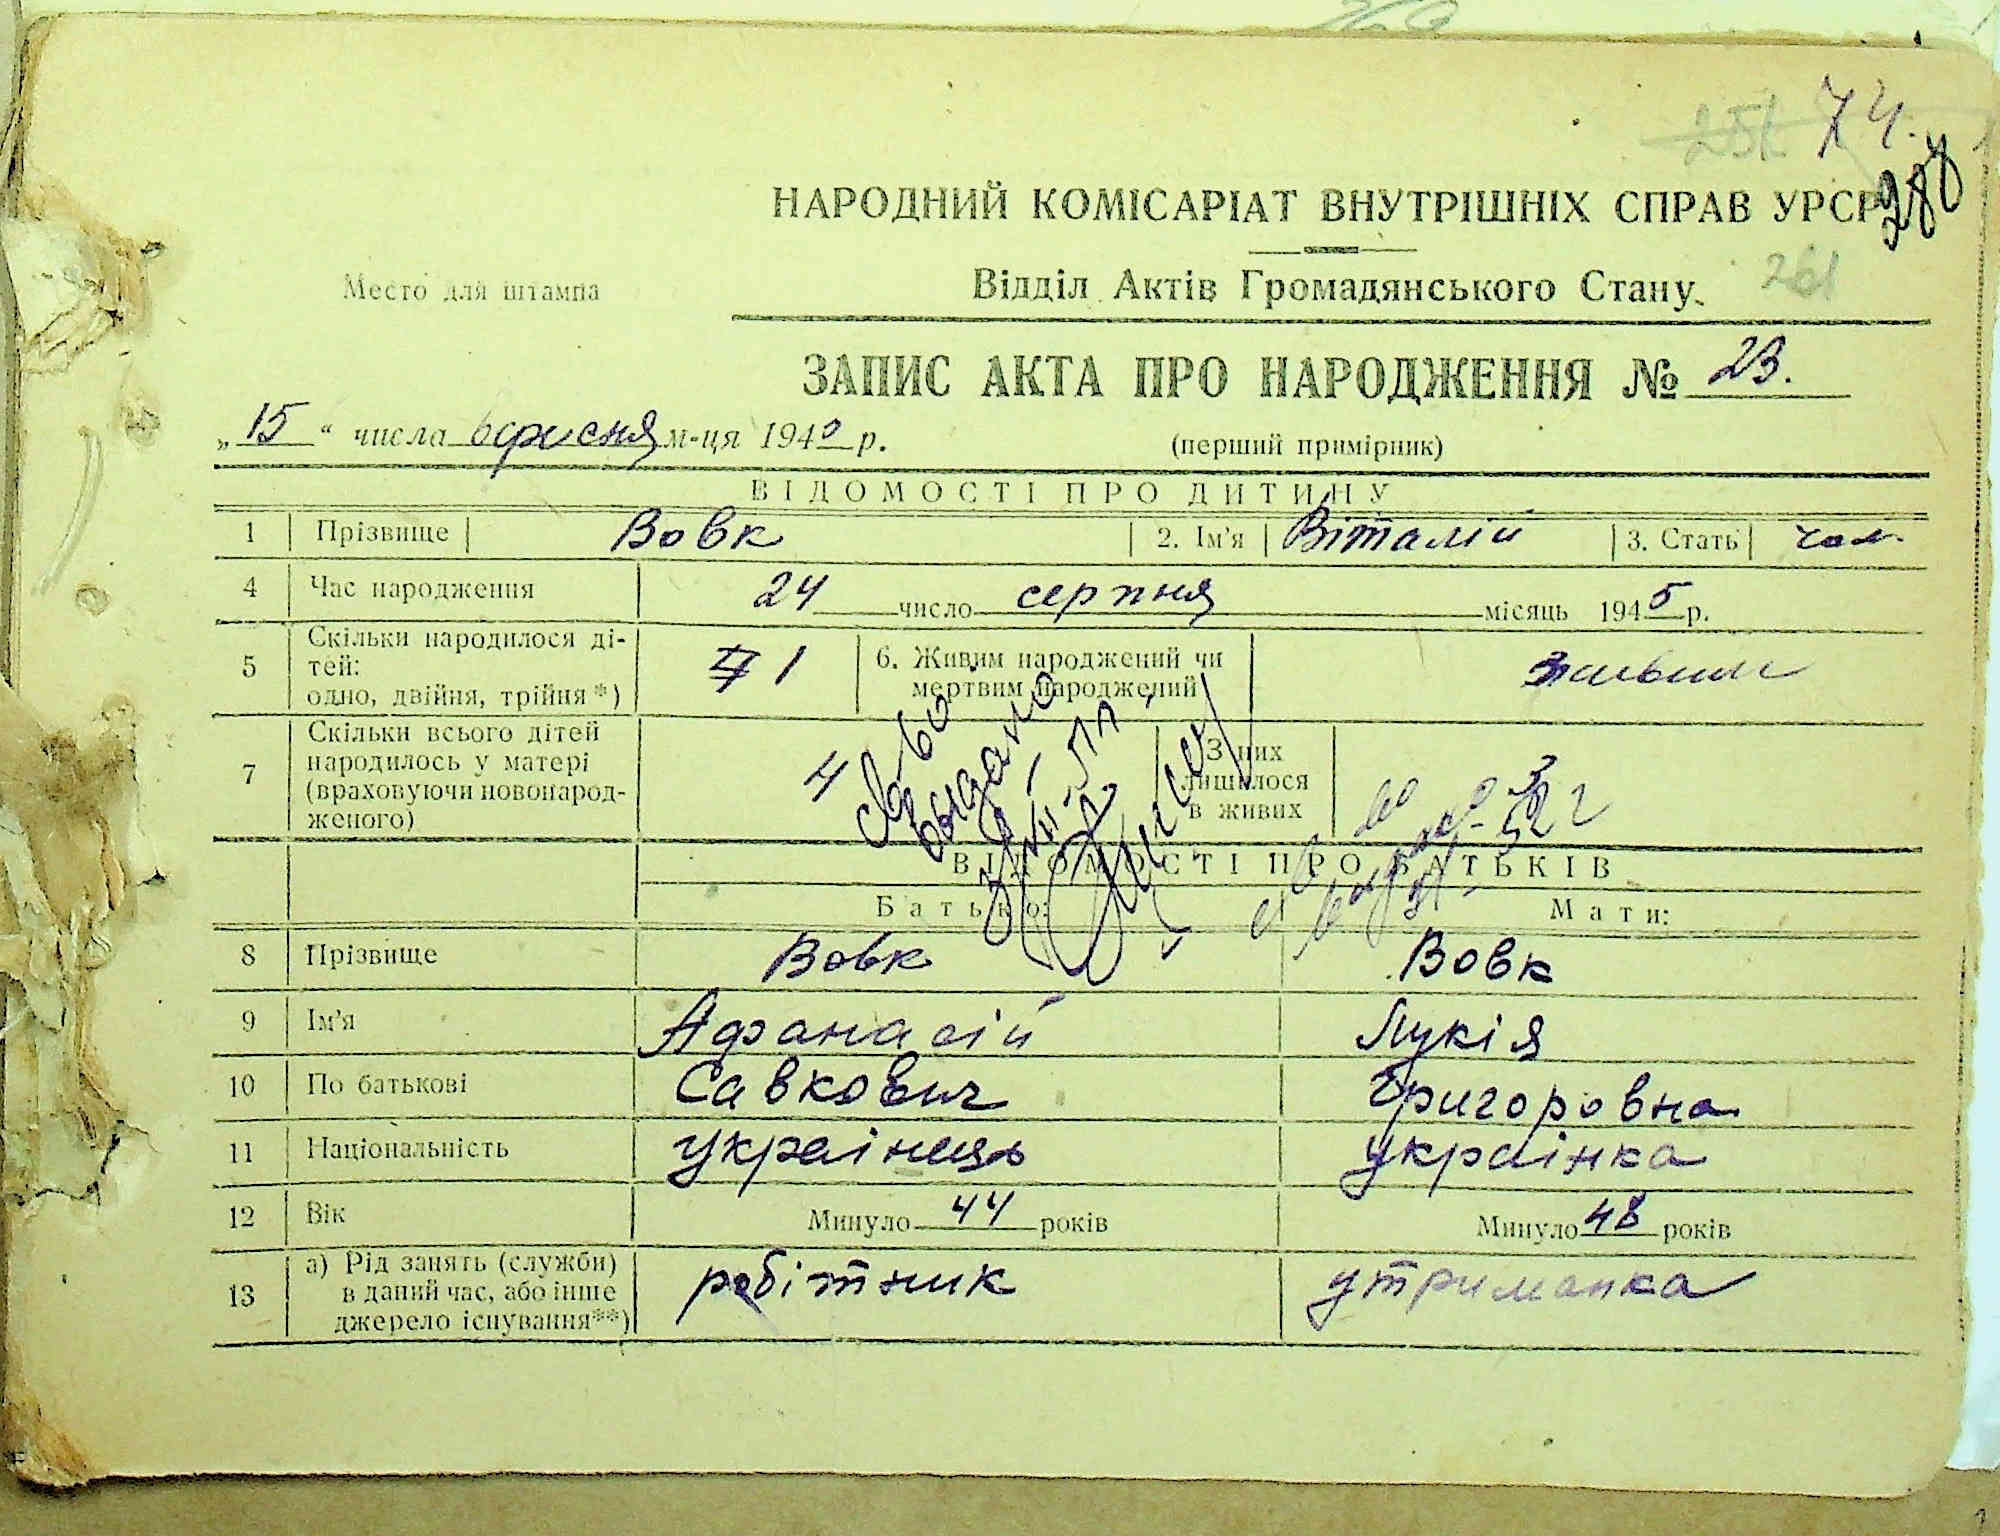 74.
280
НАРОДНИЙ КОМІСАРІАТ ВНУТРІШНІХ СПРАВ УРСР
Место для штампа
Відділ Актів Громадянського Стану.
261
ЗАПИС АКТА ПРО НАРОДЖЕННЯ № 23.
„15“ числа вересня м-ця 1940 р.
(перший примірник)
ВІДОМОСТІ ПРО ДИТИНУ
1 Прізвище Вовк 2. Ім'я Віталій 3. Стать чол.
4 Час народження 24 число серпня місяць 1945 р.
5 Скільки народилося ді-
тей:
одно, двійня, трійня*) 1
6. Живим народжений чи
мертвим народжений живим
7 Скільки всього дітей
народилось у матері
(враховуючи новонарод-
женого) 4
З них
лишилося
в живих 3
св-во
выдано
ВІДОМОСТІ ПРО БАТЬКІВ
Батько: Мати:
8 Прізвище Вовк Вовк
9 Ім'я Афанасій Лукія
10 По батькові Савкович Григоровна
11 Національність українець українка
12 Вік Минуло 44 років Минуло 48 років
13 а) Рід занять (служби)
в даний час, або інше
джерело існування**) робітник утриманка